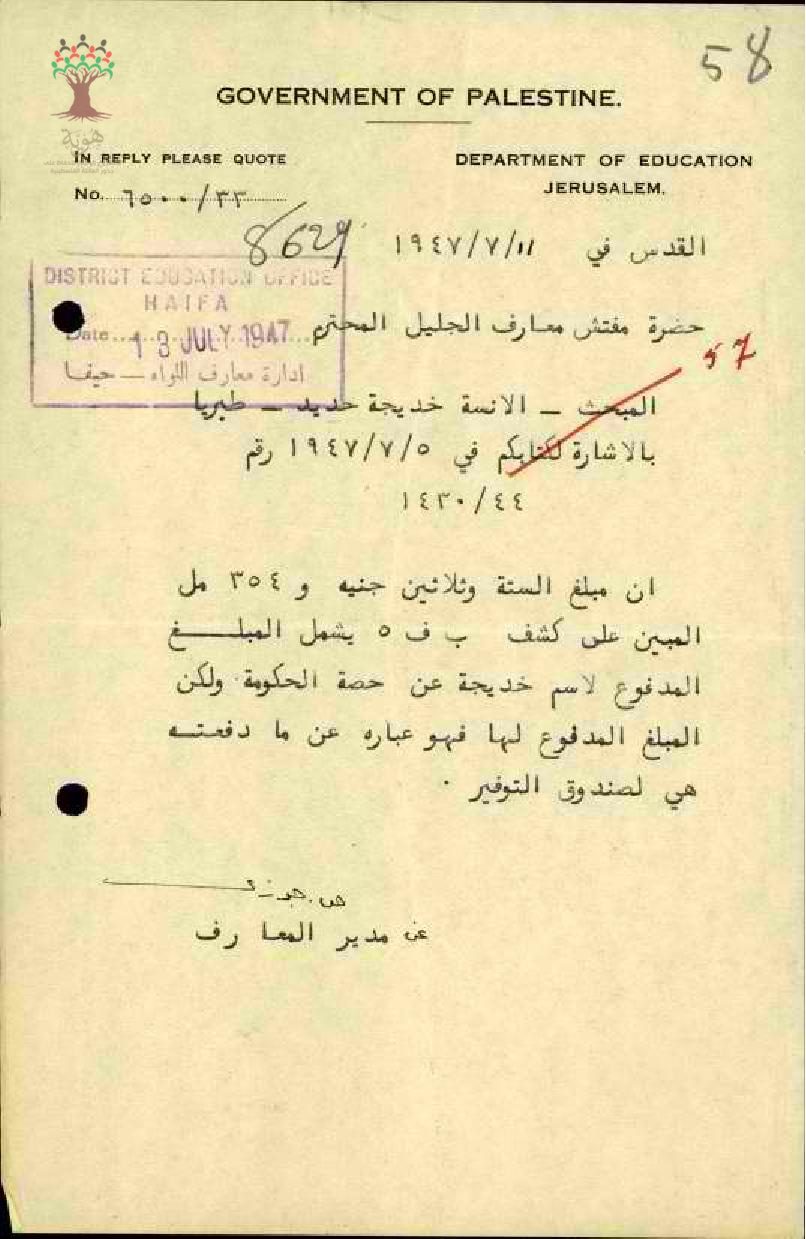 58
GOVERNMENT OF PALESTINE.
هَوِيَّة
IN REPLY PLEASE QUOTE
DEPARTMENT OF EDUCATION
JERUSALEM.
No. ٦٥٠٠/٣٣
8629
القدس في ١٩٤٧/٧/١١
DISTRICT EDUCATION OFFICE
HAIFA
Date 13 JULY 1947
ادارة معارف اللواء — حيفا
حضرة مفتش معارف الجليل المحترم
57
المبحث – الانسة خديجة حديد – طبريا
بالاشارة لكتابكم في ١٩٤٧/٧/٥ رقم
١٤٣٠/٤٤
ان مبلغ الستة وثلاثين جنيه و ٣٥٤ مل
المبين على كشف ب ف ٥ يشمل المبلـــغ
المدفوع لاسم خديجة عن حصة الحكومة ولكن
المبلغ المدفوع لها فهو عباره عن ما دفعتــه
هي لصندوق التوفير .
عن مدير المعا رف